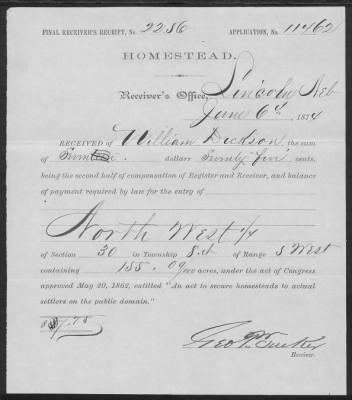 FINAL RECEIVER'S RECEIPT, No. 2286 APPLICATION, No. 11462
HOMESTEAD.
Receiver's Office, Lincoln Neb
June 6th 1874
RECEIVED of William Dickson, the sum
of dollars Twenty Five cents,
being the second half of compensation of Register and Receiver, and balance
of payment required by law for the entry of
North West 1/4
of Section 30 in Township 8 of Range 5 West
containing 155.09 acres, under the act of Congress
approved May 20, 1862, entitled "An act to secure homesteads to actual
settlers on the public domain."
Geo P. Tucker
Receiver.